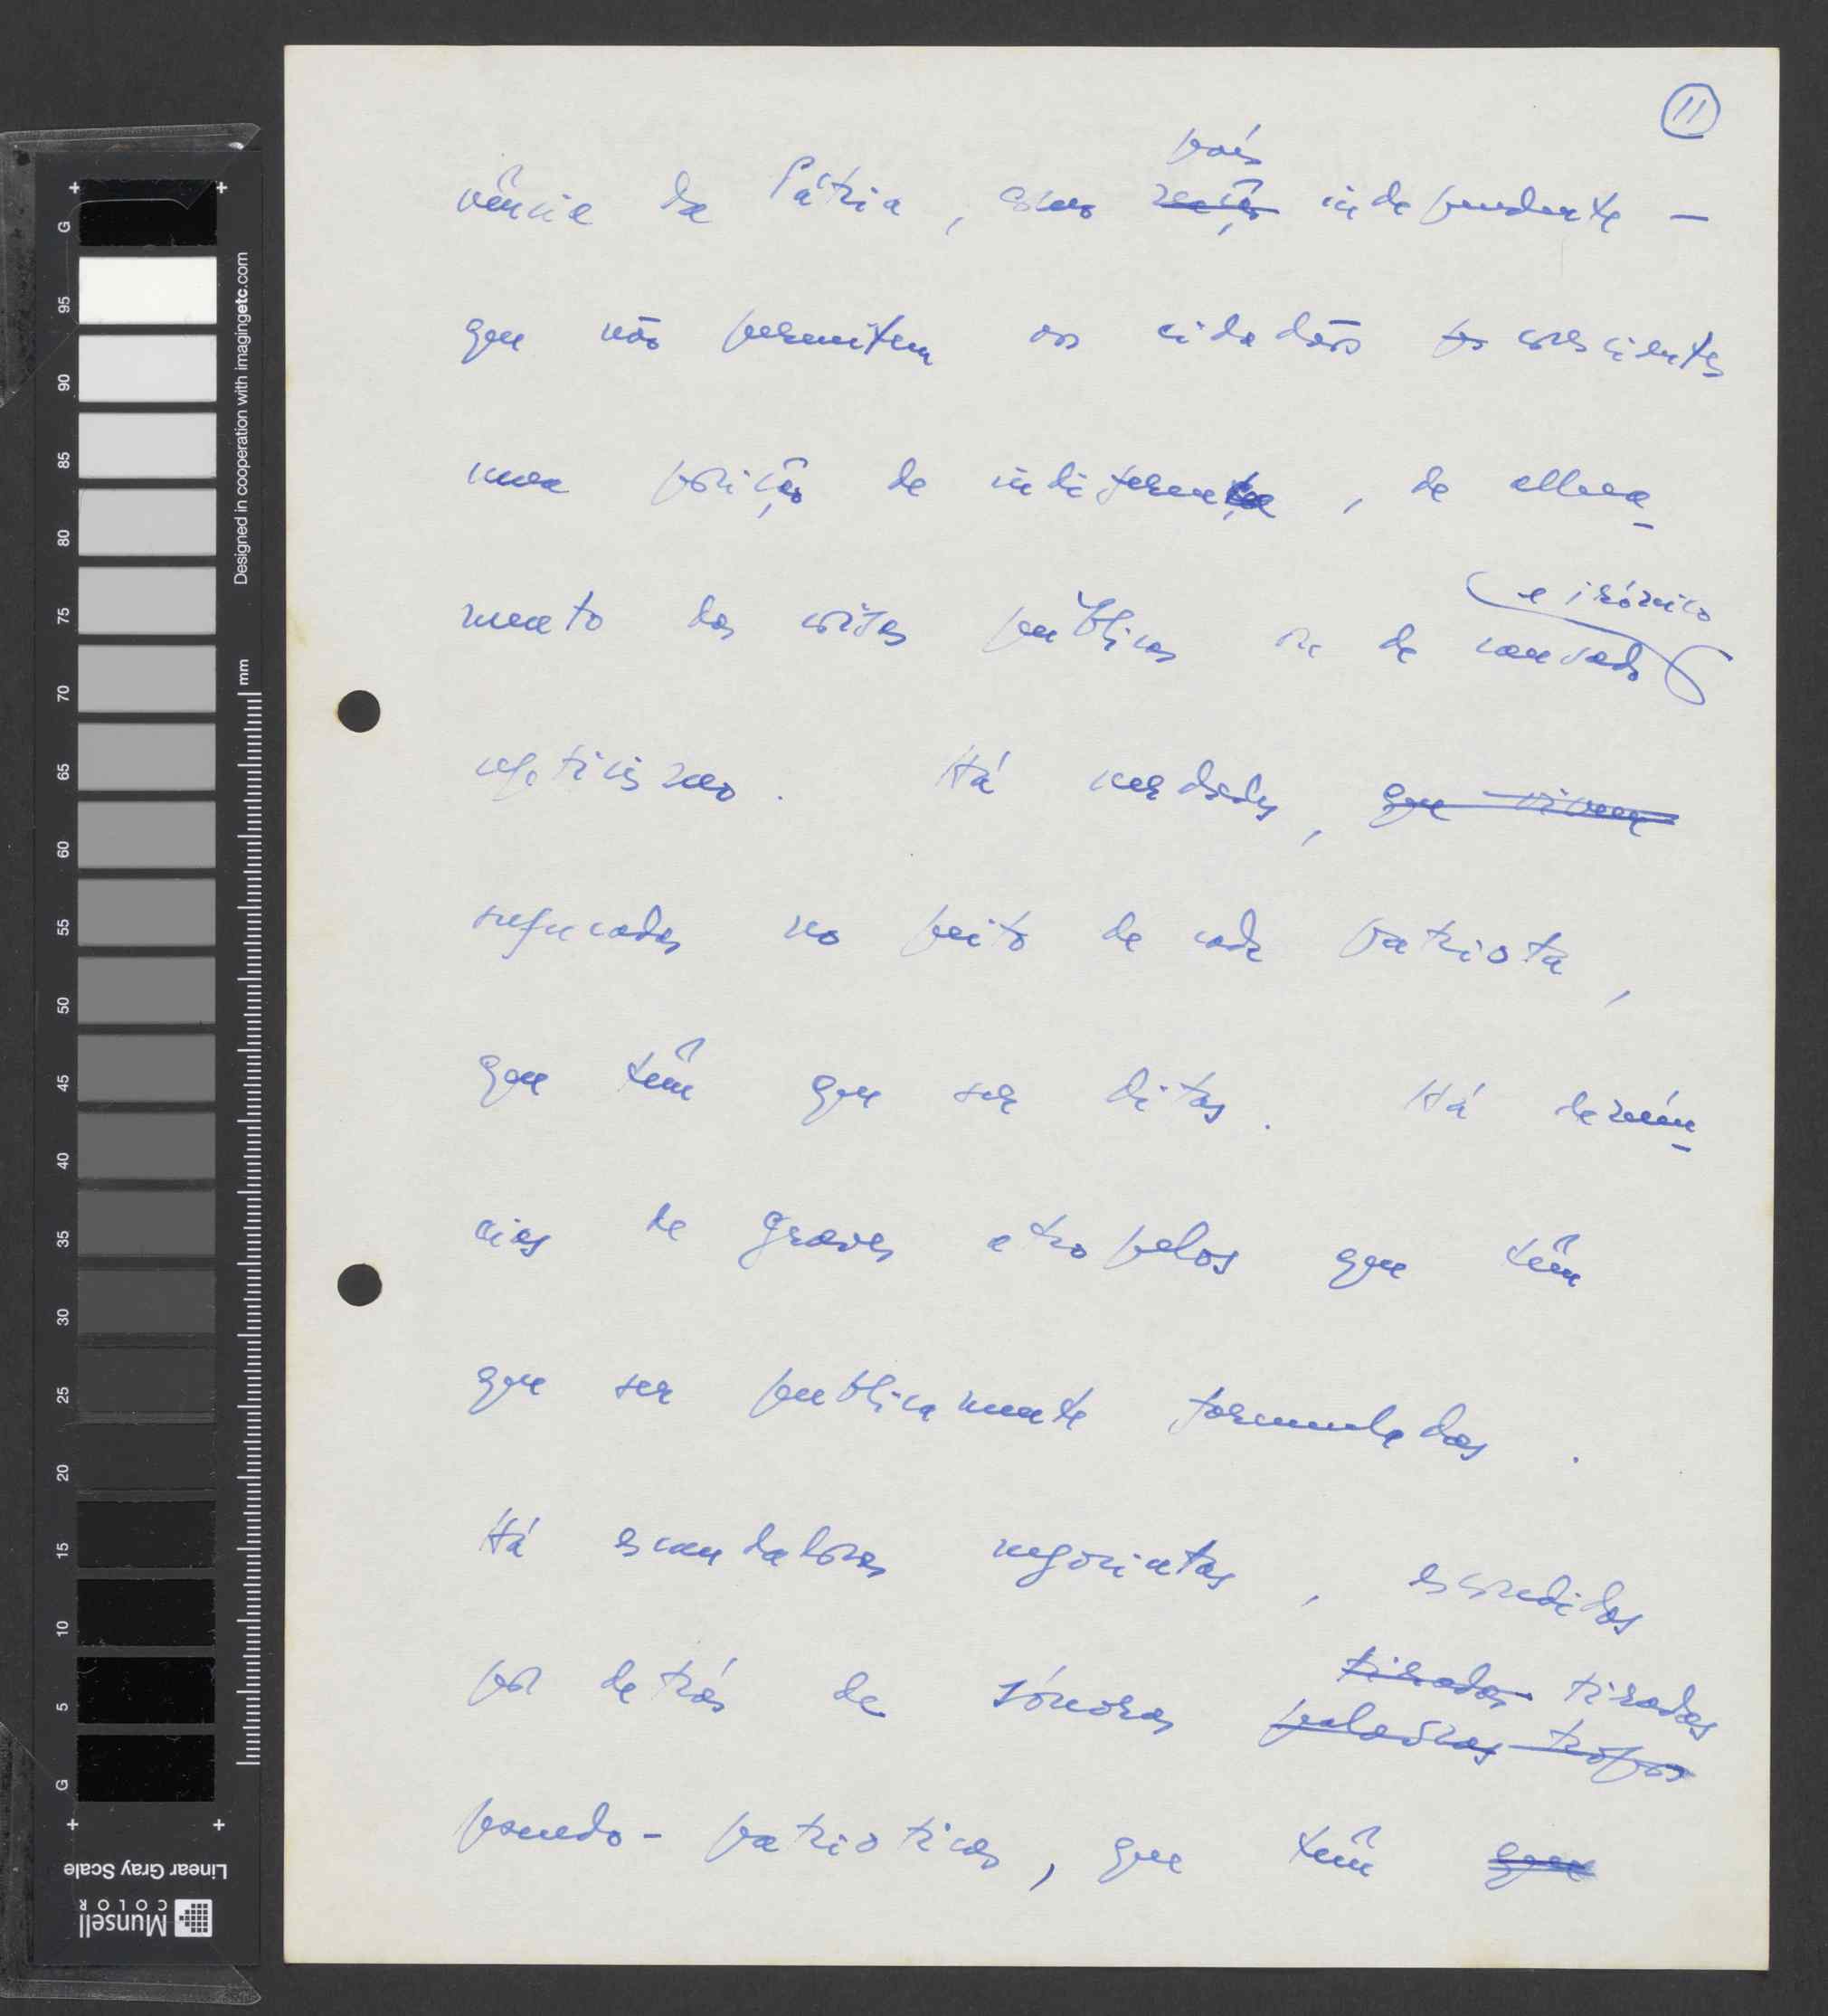 11
país
vência da Pátria, como nação independente —
que não permitem aos cidadãos conscientes
uma posição de indiferença, de alhea-
e irónico
mento das coisas públicas ou de cansado
cepticismo. Há verdades, que vivem
sufocadas no peito de cada patriota,
que têm que ser ditas. Há denún-
cias de graves atropelos que têm
que ser publicamente formuladas.
Há escandalosas negociatas, escondidas
tiradas tiradas
por detrás de sónoras palavras tropos
pseudo-patrioticas, que têm que
G 95 90 85 80 75 70 65 60 55 50 45 40 35 30 25 20 15 10 5 G
Designed in cooperation with imagingetc.com
mm
Linear Gray Scale
Munsell
COLOR